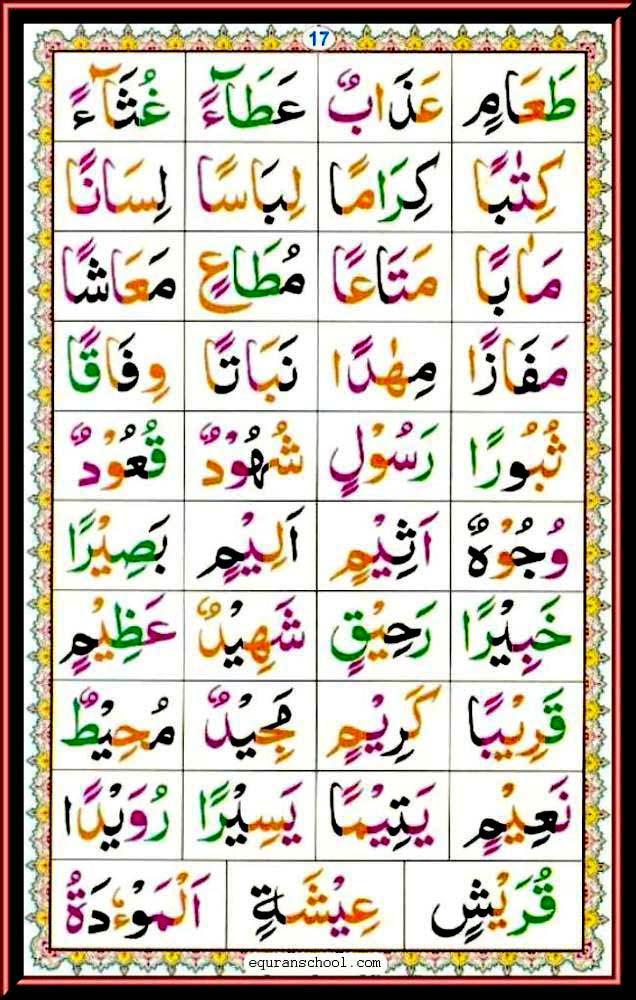 17
طَعَامٍ عَذَابٌ عَطَآءً غُثَآءً
كِتٰبًا كِرَامًا لِبَاسًا لِسَانًا
مَاٰبًا مَتَاعًا مُطَاعٍ مَعَاشًا
مَفَازًا مِهٰدًا نَبَاتًا وِفَاقًا
ثُبُورًا رَسُوْلٍ شُهُوْدٌ قُعُوْدٌ
وُجُوْهٌ اَثِيْمٍ اَلِيْمٍ بَصِيْرًا
خَبِيْرًا رَحِيْقٍ شَهِيْدٌ عَظِيْمٍ
قَرِيْبًا كَرِيْمٍ مَّجِيْدٌ مُحِيْطٌ
نَعِيْمٍ يَتِيْمًا يَسِيْرًا رُوَيْدًا
قُرَيْشٍ عِيْشَةٍ اَلْمَوْءٗدَةُ
equranschool.com